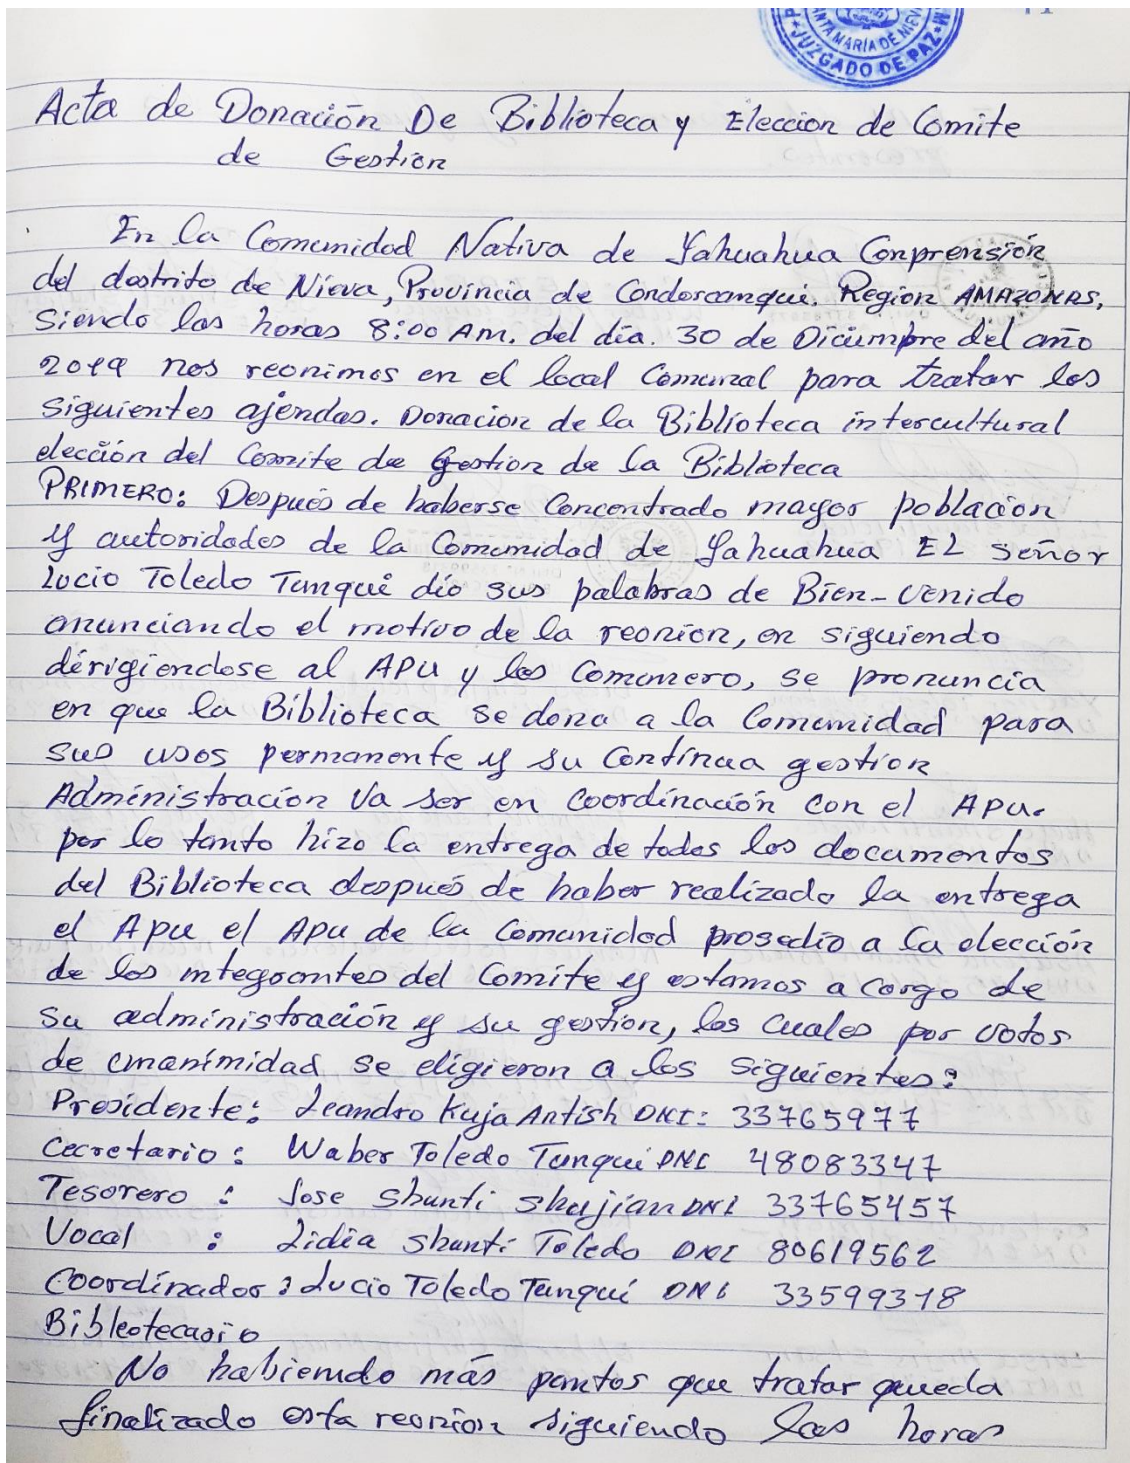 SANTA MARÍA DE NIEVA
JUZGADO DE PAZ
Acta de Donación De Biblioteca y Eleccion de Comite
de Gestion
En la Comunidad Nativa de Yahuahua Conprensión
del dostrito de Nieva, Provincia de Condorcanqui. Region AMAZONAS,
Siendo las horas 8:00 Am. del día. 30 de Diciempre del año
2019 nos reonimos en el local Comunal para tratar los
siguientes ajendas. Donacion de la Biblioteca intercultural
elección del Comite de Gestion de la Biblioteca
PRIMERO: Después de haberse Concentrado mayor población
y autoridades de la Comunidad de Yahuahua EL señor
Lucio Toledo Tunqui dío sus palabras de Bien-venido
anunciando el motivo de la reonion, en siguiendo
dírigiendose al APU y los Comonero, se pronuncia
en que la Biblioteca se dona a la Comunidad para
sus usos permanente y su Contínua gestion
Administración va ser en coordinación con el APU.
por lo tanto hizo la entrega de todos los documentos
del Biblioteca después de haber realizado la entrega
el Apu el Apu de la Comunidad prosedio a la elección
de los integrantes del Comite y estamos a cargo de
su administración y su gestion, los cuales por votos
de unanimidad se eligieron a los siguientes:
Presidente: Leandro Kuja Antish DNI: 33765977
Cecretario: Waber Toledo Tunqui DNI 48083347
Tesorero : Jose Shunti Shajian DNI 33765457
Vocal : Lidia Shunti Toledo DNI 80619562
Coordinador: Lucio Toledo Tunqui DNI 33599318
Bibleotecario
No habiendo más puntos que tratar queda
finalizado esta reonion siguiendo las horas